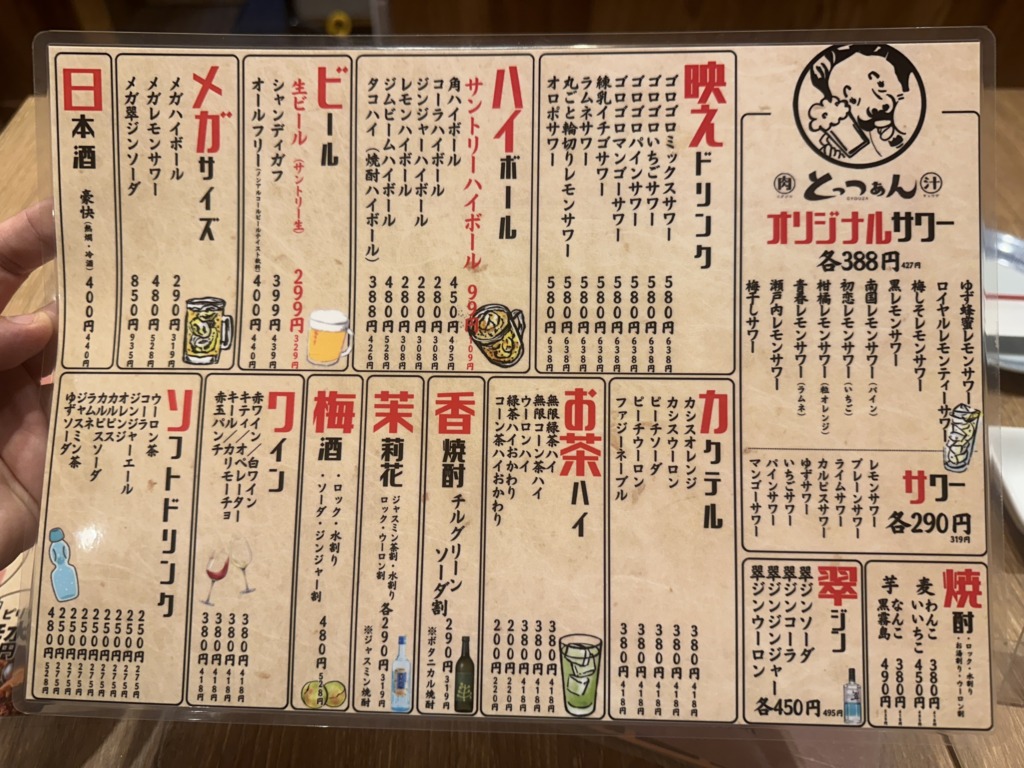 肉 とっつぁん 汁
オリジナルサワー
各388円 427円
ゆず蜂蜜レモンサワー
ロイヤルレモンティーサワー
梅しそレモンサワー
黒レモンサワー
南国レモンサワー(パイン)
初恋レモンサワー(いちご)
柑橘レモンサワー(粒オレンジ)
青春レモンサワー(ラムネ)
瀬戸内レモンサワー
梅干しサワー
サワー
各290円 319円
レモンサワー
プレーンサワー
ライムサワー
カルピスサワー
ゆずサワー
いちごサワー
パインサワー
マンゴーサワー
焼酎
・ロック・水割り
・お湯割り・ウーロン割
麦 わんこ 380円
いいちこ 450円
芋 なんこ 380円
黒霧島 490円
翠ジン
翠ジンソーダ
翠ジンコーラ
翠ジンジンジャー
翠ジンウーロン
各450円 495円
映えドリンク
ゴロゴロミックスサワー 580円 638円
ゴロゴロいちごサワー 580円 638円
ゴロゴロパインサワー 580円 638円
ゴロゴロマンゴーサワー 580円 638円
練乳イチゴサワー 580円 638円
ラムネサワー 580円 638円
丸ごと輪切りレモンサワー 580円 638円
オロポサワー 580円 638円
ハイボール
サントリーハイボール 99円 109円
角ハイボール 450円 495円
コーラハイボール 280円 308円
ジンジャーハイボール 280円 308円
レモンハイボール 280円 308円
ジムビームハイボール 480円 528円
タコハイ(焼酎ハイボール) 388円 426円
ビール
生ビール(サントリー生) 299円 329円
シャンディガフ 399円 439円
オールフリー(ノンアルコールビールテイスト飲料) 400円 440円
メガサイズ
メガハイボール 290円 319円
メガレモンサワー 480円 528円
メガ翠ジンソーダ 850円 935円
日本酒
豪快(熱燗・冷酒) 400円 440円
カクテル
カシスオレンジ 380円 418円
カシスウーロン 380円 418円
ピーチソーダ 380円 418円
ピーチウーロン 380円 418円
ファジーネーブル 380円 418円
お茶ハイ
無限緑茶ハイ 380円 418円
無限コーン茶ハイ 380円 418円
ウーロンハイ 380円 418円
緑茶ハイおかわり 200円 220円
コーン茶ハイおかわり 200円 220円
香焼酎
チルグリーン
ソーダ割 290円 319円
※ボタニカル焼酎
茉莉花
ジャスミン茶割・水割り
ロック・ウーロン割
各290円 319円
※ジャスミン焼酎
梅酒
・ロック・水割り
・ソーダ・ジンジャー割
480円 528円
ワイン
赤ワイン/白ワイン 380円 418円
キティ/オペレーター 380円 418円
キール/カリモーチョ 380円 418円
赤玉パンチ 380円 418円
ソフトドリンク
ウーロン茶 250円 275円
コーラ 250円 275円
ジンジャーエール 250円 275円
オレンジ 250円 275円
カルピス 250円 275円
カルピスソーダ 250円 275円
ラムネ
ジャスミン茶
ゆずソーダ 480円 528円